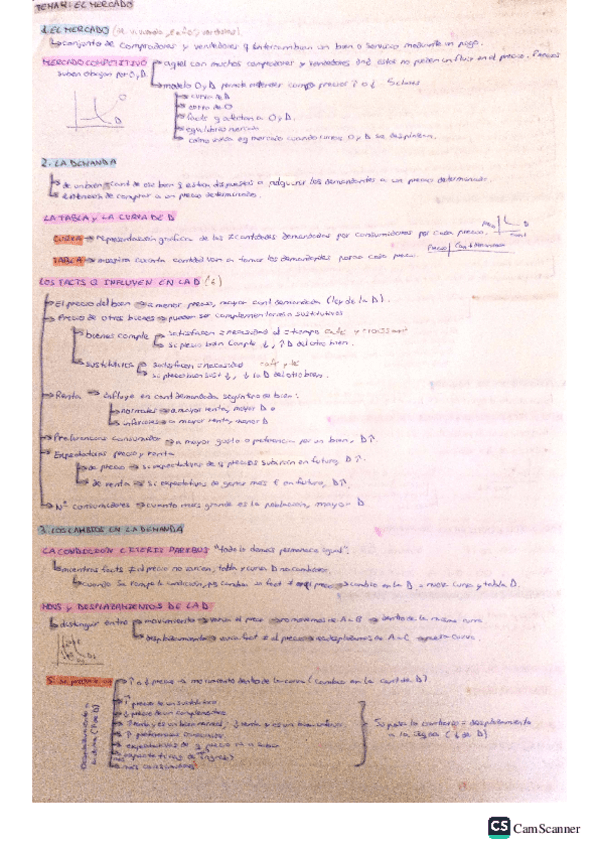 TEMA 4: EL MERCADO
1. EL MERCADO
conjunto de compradores y vendedores q intercambian un bien o servicio mediante un pago.
MERCADO COMPETITIVO aquel con muchos compradores y vendedores
suben o bajan por O y D. modelo O y D
curva de D
curva de O
facts q afectan a O y D.
equilibrio mercado
O y D se desplazan.
2. LA DEMANDA
de un bien cant de ese bien q están dispuestos a adquirir los demandantes a un precio determinado.
de comprar a un precio determinado.
LA TABLA Y LA CURVA DE D
CURVA representación gráfica de las cantidades demandadas por consumidores por cada precio.
TABLA muestra cuanta cantidad van a tomar los demandantes para cada precio.
LOS FACTS Q INFLUYEN EN LA D (6)
El precio del bien a menor precio, mayor cant demandada (ley de la D).
Precio de otros bienes pueden ser complementarios o sustitutivos
bienes comple satisfacen = necesidad al = tiempo café y croissant
si precio bien comple ↓, ↑ D del otro bien.
sustitutivos satisfacen = necesidad café y té
si precio bien sust ↓, ↓ la D del otro bien.
Renta influye en cant demandada según tipo de bien:
normales a mayor renta, mayor D
inferiores a mayor renta, menor D
Preferencias consumidor a mayor gusto o preferencia por un bien, D↑.
Expectativas precio y renta
de precio si expectativas de q precios subirán en futuro, D↑.
de renta si expectativas de ganar más € en futuro, D↑.
Nº consumidores cuanto más grande es la población, mayor D
3. LOS CAMBIOS EN LA DEMANDA
LA CONDICIÓN CETERIS PARIBUS "todo lo demás permanece igual".
mientras facts ≠ al precio no varíen, tabla y curva D no cambian.
cuando se rompe la condición, cambio en la D = nueva curva y tabla D.
MOVS Y DESPLAZAMIENTOS DE LA D
distinguir entre movimiento varía el precio nos movemos de A a B dentro de la misma curva.
desplazamiento varía fact ≠ al precio nos desplazamos de A a C nueva curva.
↑ o ↓ precio movimiento dentro de la curva (cambio en la cant de D)
↑ precio de un sustitutivo
↓ precio de un complementario
↑ renta y es un bien normal, ↓ renta y es un bien inferior
↑ preferencias consumidor
expectativas de q precio va a subir
más consumidores
CS CamScanner